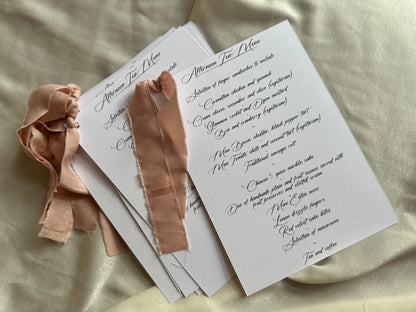 Afternoon Tea Menu
Afternoon Tea Menu
Selection of finger sandwiches to include
Coronation chicken and spinach
Cream cheese, cucumber and chive (vegetarian)
Gammon, rocket and Dijon mustard
Brie and cranberry (vegetarian)
Mini Bacon, cheddar, black pepper tart
Mini Tomato, chilli and coconut tart (vegetarian)
Traditional sausage roll
~
Duo of handmade plain and fruit scones served with
fruit preserves and clotted cream
Mini Eton mess
Lemon drizzle fingers
Red velvet cake bites
Selection of macaroons
~
Tea and coffee